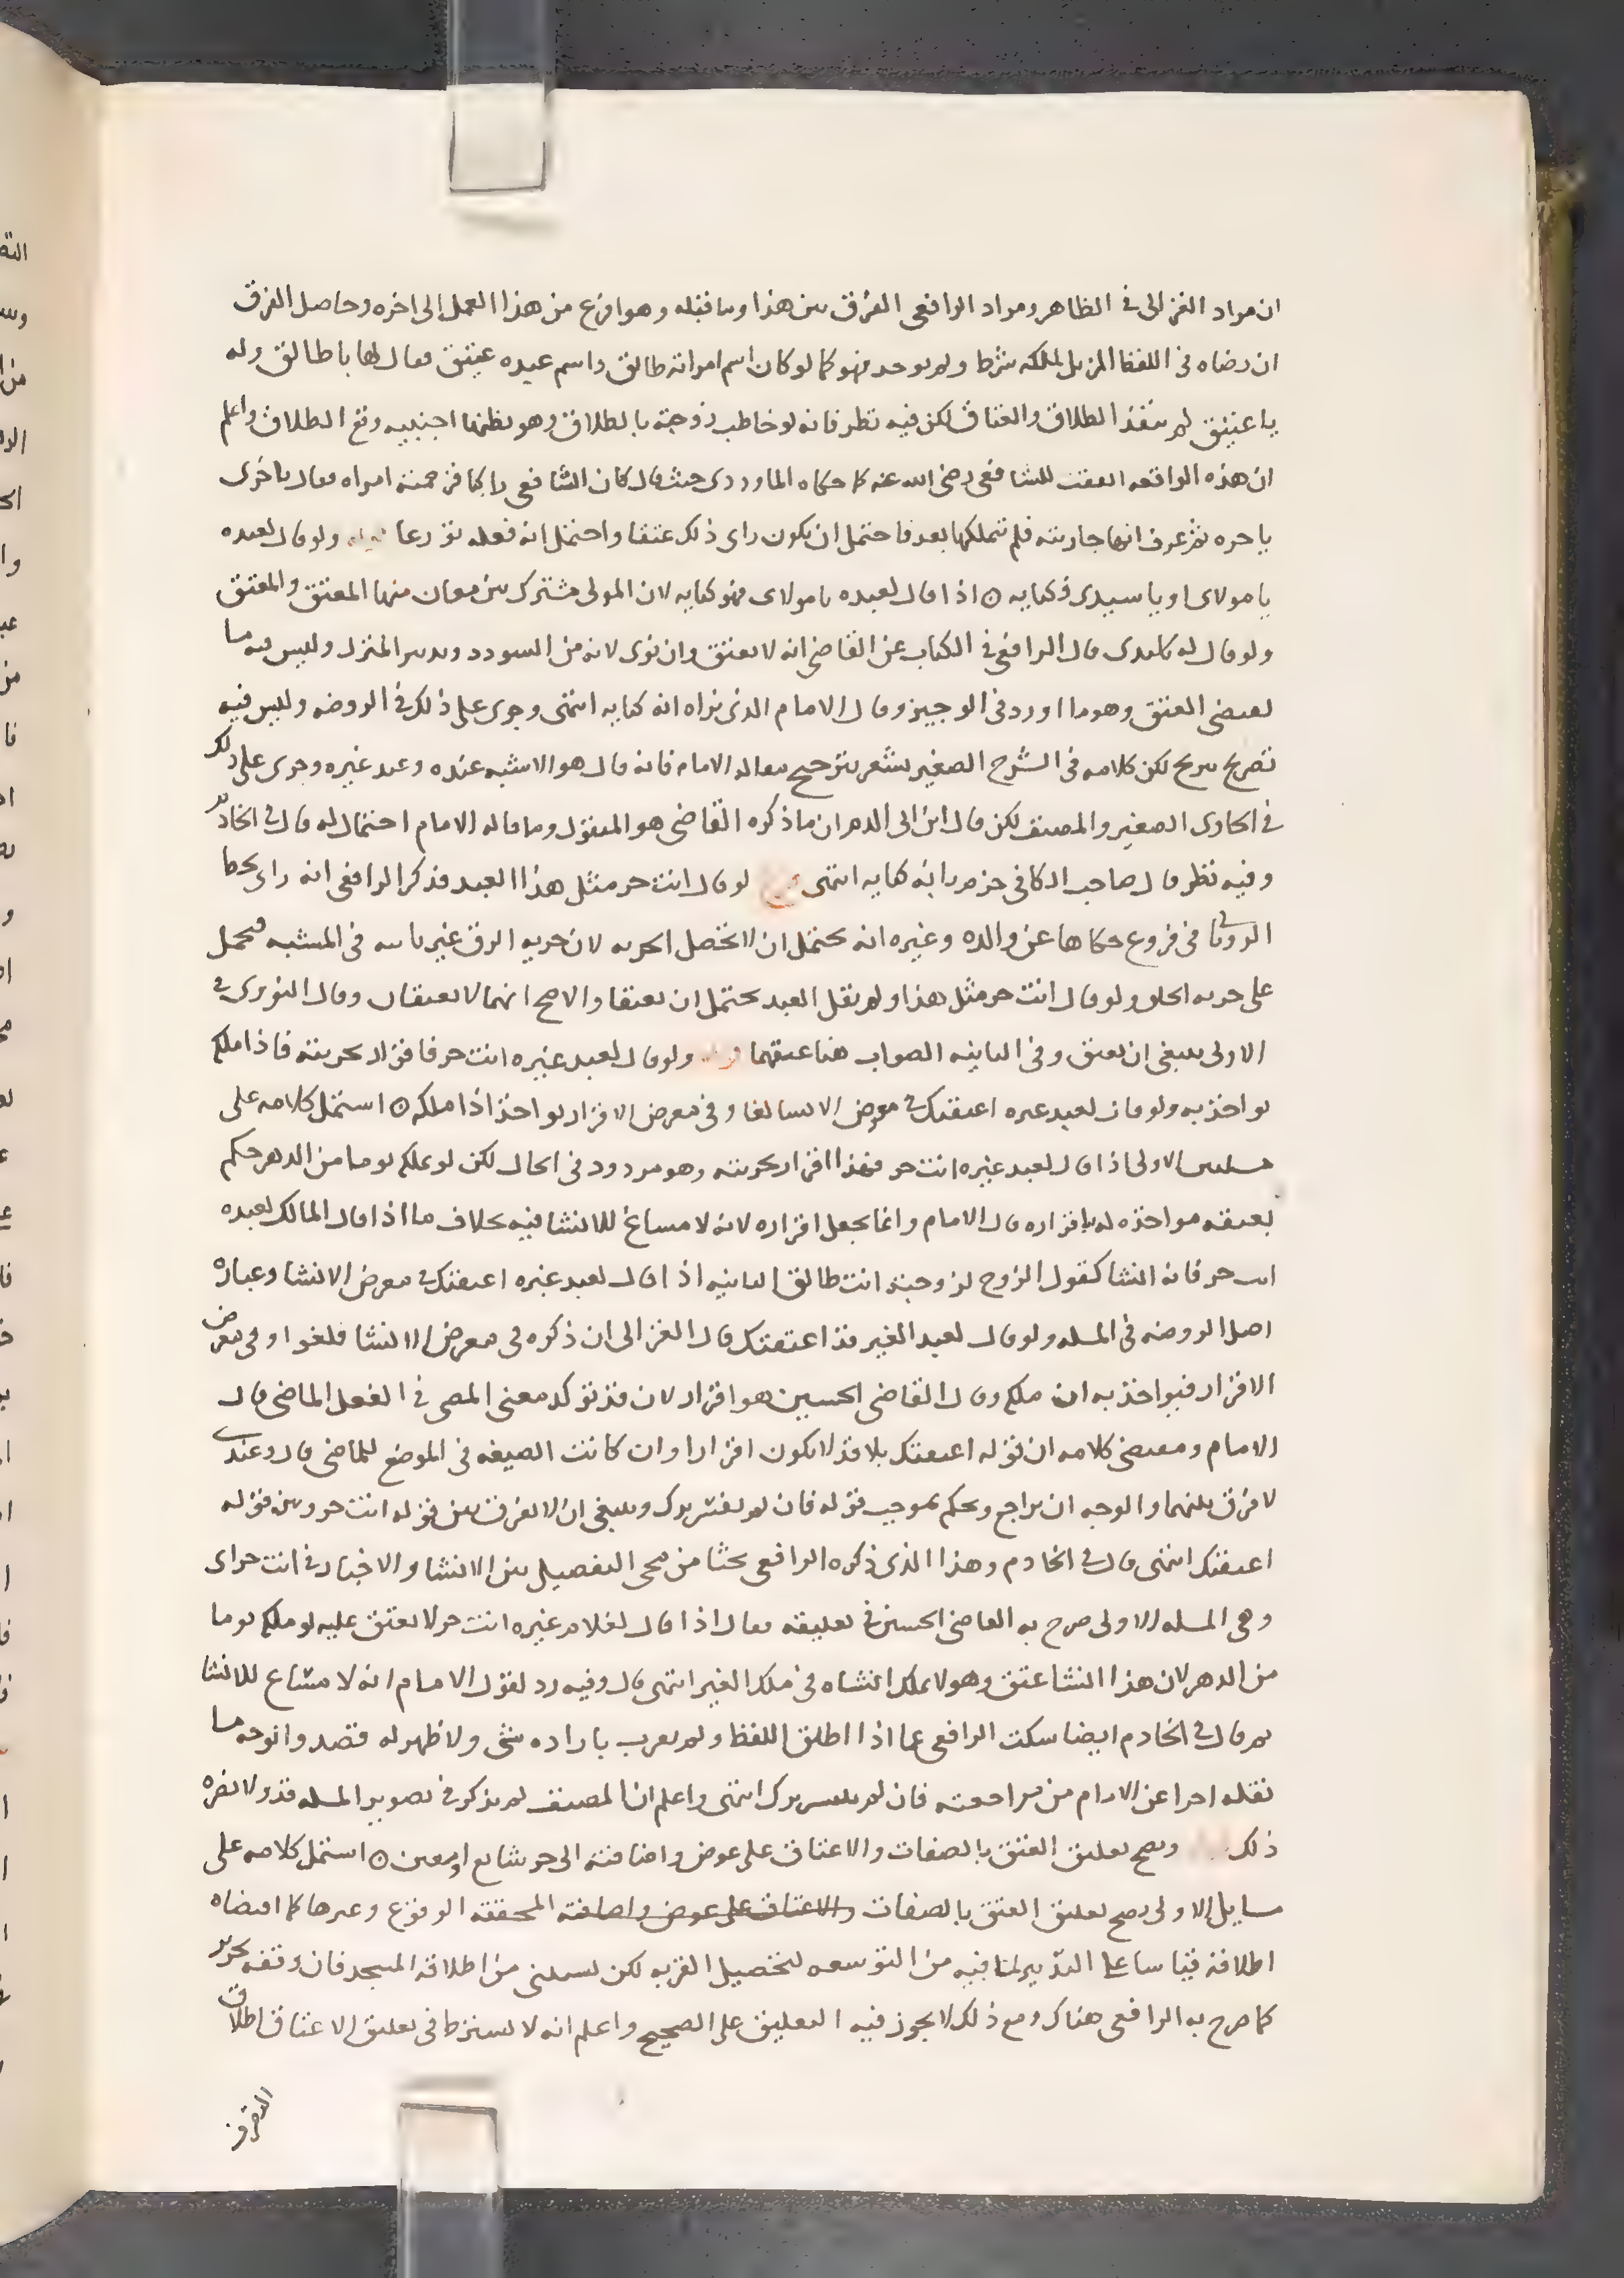 ان مراد الغزالى فى الظاهر ومراد الرافعى الفرق بين هذا وما قبله وهو افزع من هذا العمل الى اخره وحاصل الفرق
ان رضاه فى اللفظ المزيل لملكه شرط ولم يوجد فهو كما لو كان اسم امراته طالق واسم عبده عتيق فقال لها يا طالق وله
يا عتيق لم ينفذ الطلاق والعتاق لكن فيه نظر فانه لو خاطب زوجته بالطلاق وهو يظنها اجنبيه وقع الطلاق واعلم
ان هذه الواقعه اتفقت للشافعى رضى الله عنه كما حكاه الماوردى حيث قال كان الشافعى راكبا فزحمته امراه فقال تاخرى
يا حره ثم عرف انها جاريته فلم يتملكها بعد فاحتمل ان يكون راى ذلك عتقا واحتمل انه فعله تورعا ولو قال لعبده
يا مولاى او يا سيدى فكنايه ه اذا قال لعبده يا مولاى فهو كنايه لان المولى مشترك بين معان منها المعتق والمعتق
ولو قال له يا سيدى قال الرافعى فى الكتاب عن القاضى انه لا يعتق وان نوى لانه من السودد وتدبير المنزل وليس فيه ما
يقتضى العتق وهو ما اورد فى الوجيز وقال الامام الذى نراه انه كنايه انتهى وجرى على ذلك فى الروضه وليس فيه
تصريح بترجيح لكن كلامه فى الشرح الصغير يشعر بترجيح مقاله الامام فانه قال هو الاشبه عنده وعند غيره وجرى على ذلك
فى الحاوى الصغير والمصنف لكن قال ابن ابى الدم ان ما ذكره القاضى هو المنقول وما قاله الامام احتمال له قال فى الخادم
وفيه نظر قال صاحب الكافى جزم بانه كنايه انتهى لو قال انت حر مثل هذا العبد فذكر الرافعى انه راى بخط
الرويانى فى فروع حكاها عن والده وغيره انه يحتمل ان لا تحصل الحريه لان حريه الرق غير ثابته فى المشبه فيحمل
على حريه الخلق ولو قال انت حر مثل هذا ولم يقل العبد يحتمل ان يعتقا والاصح انهما لا يعتقان وقال النووى فى
الاولى ينبغى ان يعتق وفى الثانيه الصواب هنا عتقهما ولو قال لعبد غيره انت حر فاقرار بحريته فاذا ملكه
يواخذ به ولو قال لعبد غيره اعتقتك فى معرض الانشا لغا وفى معرض الاقرار يواخذ اذا ملكه ه اشتمل كلامه على
مسلتين الاولى اذا قال لعبد غيره انت حر فهذا اقرار بحريته وهو مردود فى الحال لكن لو ملكه يوما من الدهر حكم
بعتقه مواخذه له باقراره قال الامام وانما يجعل اقراره لانه لا مساغ للانشا فيه بخلاف ما اذا قال المالك لعبده
انت حر فانه انشا كقول الزوج لزوجته انت طالق الثانيه اذا قال لعبد غيره اعتقتك فى معرض الانشا وعباره
اصل الروضه فى المسله ولو قال لعبد الغير قد اعتقتك قال الغزالى ان ذكره فى معرض الانشا فلغوا وفى معرض
الاقرار فيواخذ به ان ملكه وقال القاضى الحسين هو اقرار لان قد توكد معنى المضى فى الفعل الماضى قال
الامام ومقتضى كلامه ان قوله اعتقتك بلا قد لا يكون اقرارا وان كانت الصيغه فى الموضع للماضى قال وعندى
لا فرق بينهما والوجه ان يراجع ويحكم بموجب قوله فان لم يفسر ترك وينبغى ان لا يفرق بين قوله انت حر وبين قوله
اعتقتك انتهى قال فى الخادم وهذا الذى ذكره الرافعى بحثا من مجى التفصيل بين الانشا والاخبار فى انت حر اى
وهى المسله الاولى صرح به القاضى الحسين فى تعليقه فقال اذا قال لغلام غيره انت حر لا يعتق عليه لو ملكه يوما
من الدهر لان هذا انشا عتق وهو لا يملك انشاه فى ملك الغير انتهى قال وفيه رد لقول الامام انه لا مشاع للانشا
ثم قال فى الخادم ايضا سكت الرافعى عما اذا اطلق اللفظ ولم يعرب باراده شى ولا ظهر له قصد والوجه ما
نقله اخرا عن الامام من مراجعته فان لم يفسر ترك انتهى واعلم ان المصنف لم يذكر فى تصوير المسله قد ولا يضره
ذلك ويصح تعليق العتق بالصفات والاعتاق على عوض واضافته الى جز شايع او معين ه اشتمل كلامه على
مسايل الاولى يصح تعليق العتق بالصفات والاعتاق على عوض واضافته المحققه الوقوع وغيرها كما اقتضاه
اطلاقه قياسا على التدبير لما فيه من التوسعه لتحصيل القربه لكن يستثنى من اطلاقه المسجد فان وقفه تحرير
كما صرح به الرافعى هناك ومع ذلك لا يجوز فيه التعليق على الصحيح واعلم انه لا يشترط فى تعليق الاعتاق اطلاق
التصرف